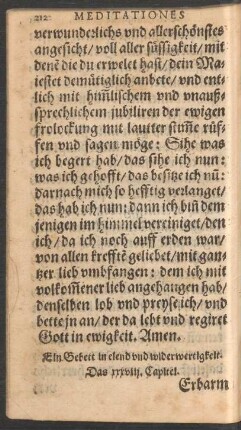 212 MEDITATIONES
verwunderlichs vnd allerschönstes
angesicht/ voll aller süssigkeit/ mit
denē die du erwelet hast/ dein Ma-
iestet demütiglich anbete/ vnd ent-
lich mit him̃lischem vnd vnauß-
sprechlichem jubiliren der ewigen
frolockung mit lautter stim̃e rüf-
fen vnd sagen möge: Sihe was
ich begert hab/ das sihe ich nun:
was ich gehofft/ das besitze ich nū:
darnach mich so hefftig verlanget/
das hab ich nun: dann ich biñ dem
jenigen im himmel vereiniget/ den
ich/ da ich noch auff erden war/
von allen krefftē geliebet/ mit gan-
tzer lieb vmbfangen: dem ich mit
volkom̃ener lieb angehangen hab/
denselben lob vnd preyse ich/ vnd
bette jn an/ der da lebt vnd regiret
Gott in ewigkeit. Amen.
Ein Gebett in elend vnd widerwertigkeit.
Das xxxviij. Capitel.
Erbarm